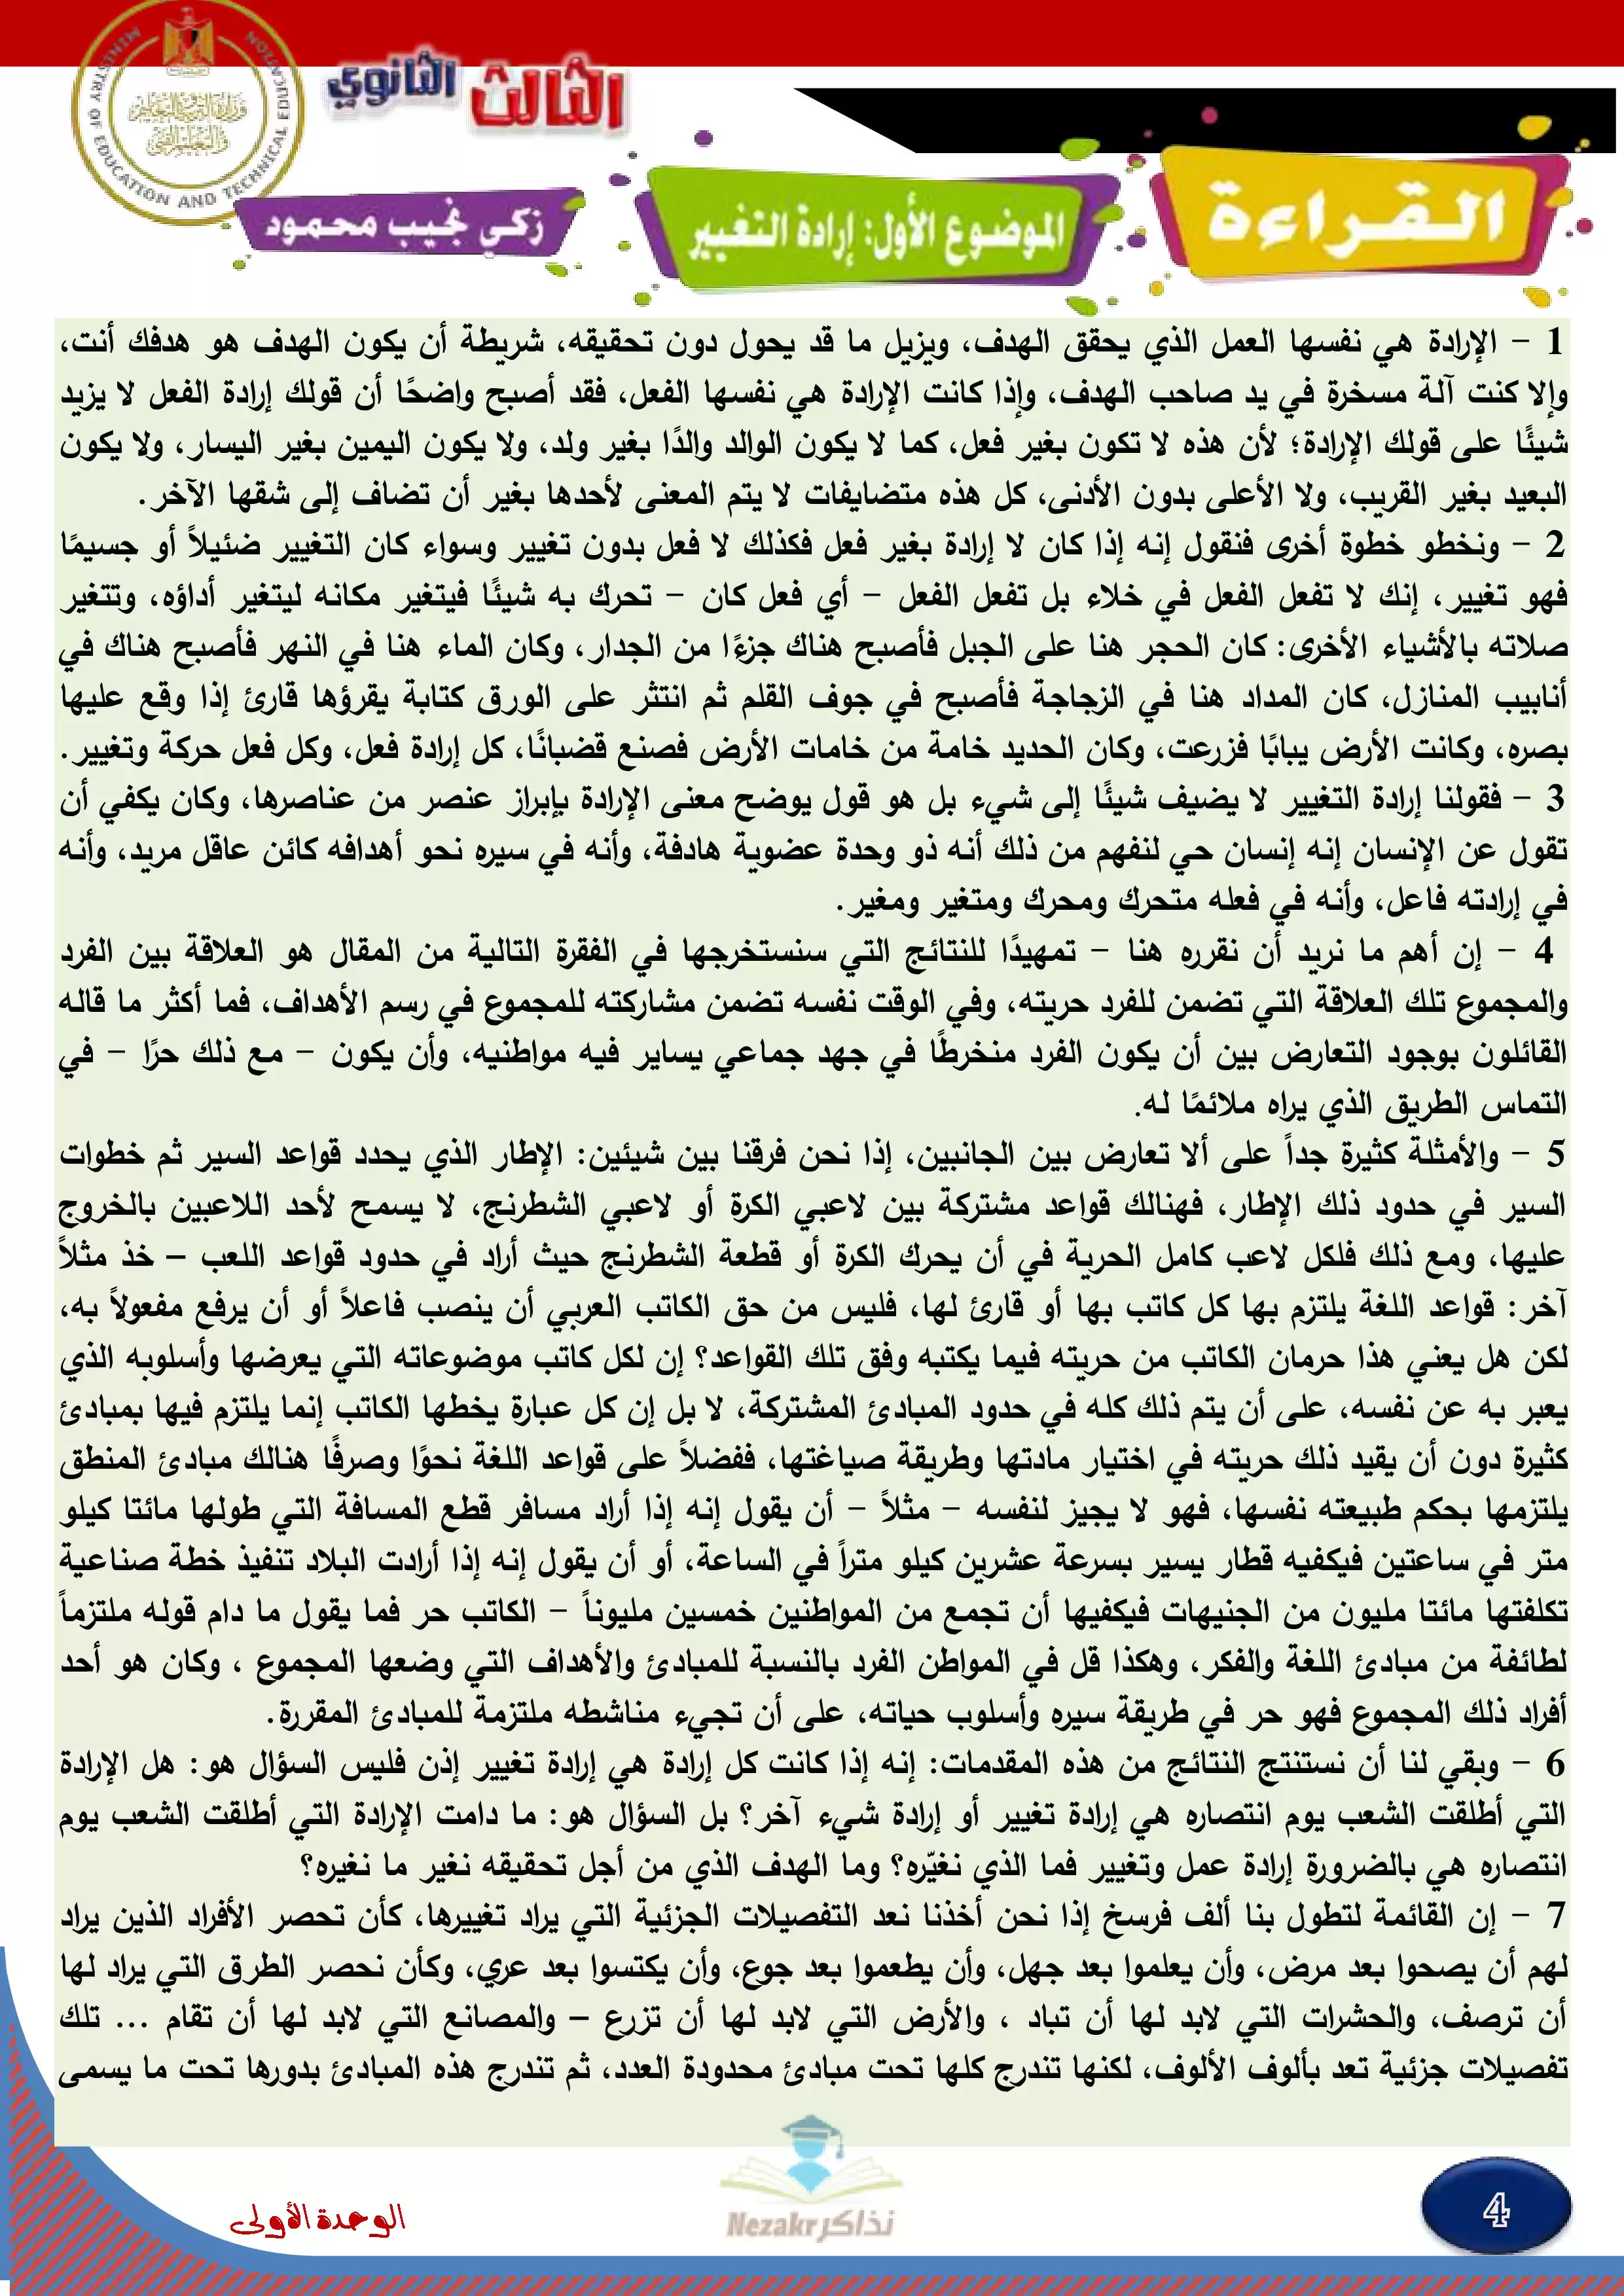 الثالث الثانوي
MINISTRY OF EDUCATION AND TECHNICAL EDUCATION
وزارة التربية والتعليم
والتعليم الفني
القراءة
الموضوع الأول: إرادة التغيير
زكي نجيب محمود
1 - الإرادة هي نفسها العمل الذي يحقق الهدف، ويزيل ما قد يحول دون تحقيقه، شريطة أن يكون الهدف هو هدفك أنت،
وإلا كنت آلة مسخرة في يد صاحب الهدف، وإذا كانت الإرادة هي نفسها الفعل، فقد أصبح واضحًا أن قولك إرادة الفعل لا يزيد
شيئًا على قولك الإرادة؛ لأن هذه لا تكون بغير فعل، كما لا يكون الوالد والدًا بغير ولد، ولا يكون اليمين بغير اليسار، ولا يكون
البعيد بغير القريب، ولا الأعلى بدون الأدنى، كل هذه متضايفات لا يتم المعنى لأحدها بغير أن تضاف إلى شقها الآخر.
2 - ونخطو خطوة أخرى فنقول إنه إذا كان لا إرادة بغير فعل فكذلك لا فعل بدون تغيير وسواء كان التغيير ضئيلاً أو جسيمًا
فهو تغيير، إنك لا تفعل الفعل في خلاء بل تفعل الفعل - أي فعل كان - تحرك به شيئًا فيتغير مكانه ليتغير أداؤه، وتتغير
صلاته بالأشياء الأخرى: كان الحجر هنا على الجبل فأصبح هناك جزءًا من الجدار، وكان الماء هنا في النهر فأصبح هناك في
أنابيب المنازل، كان المداد هنا في الزجاجة فأصبح في جوف القلم ثم انتثر على الورق كتابة يقرؤها قارئ إذا وقع عليها
بصره، وكانت الأرض يبابًا فزرعت، وكان الحديد خامة من خامات الأرض فصنع قضبانًا، كل إرادة فعل، وكل فعل حركة وتغيير.
3 - فقولنا إرادة التغيير لا يضيف شيئًا إلى شيء بل هو قول يوضح معنى الإرادة بإبراز عنصر من عناصرها، وكان يكفي أن
تقول عن الإنسان إنه إنسان حي لنفهم من ذلك أنه ذو وحدة عضوية هادفة، وأنه في سيره نحو أهدافه كائن عاقل مريد، وأنه
في إرادته فاعل، وأنه في فعله متحرك ومحرك ومتغير ومغير.
4 - إن أهم ما نريد أن نقرره هنا - تمهيدًا للنتائج التي سنستخرجها في الفقرة التالية من المقال هو العلاقة بين الفرد
والمجموع تلك العلاقة التي تضمن للفرد حريته، وفي الوقت نفسه تضمن مشاركته للمجموع في رسم الأهداف، فما أكثر ما قاله
القائلون بوجود التعارض بين أن يكون الفرد منخرطًا في جهد جماعي يساير فيه مواطنيه، وأن يكون - مع ذلك حرًا - في
التماس الطريق الذي يراه ملائمًا له.
5 - والأمثلة كثيرة جداً على ألا تعارض بين الجانبين، إذا نحن فرقنا بين شيئين: الإطار الذي يحدد قواعد السير ثم خطوات
السير في حدود ذلك الإطار، فهنالك قواعد مشتركة بين لاعبي الكرة أو لاعبي الشطرنج، لا يسمح لأحد اللاعبين بالخروج
عليها، ومع ذلك فلكل لاعب كامل الحرية في أن يحرك الكرة أو قطعة الشطرنج حيث أراد في حدود قواعد اللعب – خذ مثلاً
آخر: قواعد اللغة يلتزم بها كل كاتب بها أو قارئ لها، فليس من حق الكاتب العربي أن ينصب فاعلاً أو أن يرفع مفعولاً به،
لكن هل يعني هذا حرمان الكاتب من حريته فيما يكتبه وفق تلك القواعد؟ إن لكل كاتب موضوعاته التي يعرضها وأسلوبه الذي
يعبر به عن نفسه، على أن يتم ذلك كله في حدود المبادئ المشتركة، لا بل إن كل عبارة يخطها الكاتب إنما يلتزم فيها بمبادئ
كثيرة دون أن يقيد ذلك حريته في اختيار مادتها وطريقة صياغتها، ففضلاً على قواعد اللغة نحوًا وصرفًا هنالك مبادئ المنطق
يلتزمها بحكم طبيعته نفسها، فهو لا يجيز لنفسه - مثلاً - أن يقول إنه إذا أراد مسافر قطع المسافة التي طولها مائتا كيلو
متر في ساعتين فيكفيه قطار يسير بسرعة عشرين كيلو متراً في الساعة، أو أن يقول إنه إذا أرادت البلاد تنفيذ خطة صناعية
تكلفتها مائتا مليون من الجنيهات فيكفيها أن تجمع من المواطنين خمسين مليوناً - الكاتب حر فما يقول ما دام قوله ملتزماً
لطائفة من مبادئ اللغة والفكر، وهكذا قل في المواطن الفرد بالنسبة للمبادئ والأهداف التي وضعها المجموع ، وكان هو أحد
أفراد ذلك المجموع فهو حر في طريقة سيره وأسلوب حياته، على أن تجيء مناشطه ملتزمة للمبادئ المقررة.
6 - وبقي لنا أن نستنتج النتائج من هذه المقدمات: إنه إذا كانت كل إرادة هي إرادة تغيير إذن فليس السؤال هو: هل الإرادة
التي أطلقت الشعب يوم انتصاره هي إرادة تغيير أو إرادة شيء آخر؟ بل السؤال هو: ما دامت الإرادة التي أطلقت الشعب يوم
انتصاره هي بالضرورة إرادة عمل وتغيير فما الذي نغيّره؟ وما الهدف الذي من أجل تحقيقه نغير ما نغيره؟
7 - إن القائمة لتطول بنا ألف فرسخ إذا نحن أخذنا نعد التفصيلات الجزئية التي يراد تغييرها، كأن تحصر الأفراد الذين يراد
لهم أن يصحوا بعد مرض، وأن يعلموا بعد جهل، وأن يطعموا بعد جوع، وأن يكتسوا بعد عري، وكأن نحصر الطرق التي يراد لها
أن ترصف، والحشرات التي لابد لها أن تباد ، والأرض التي لابد لها أن تزرع – والمصانع التي لابد لها أن تقام ... تلك
تفصيلات جزئية تعد بألوف الألوف، لكنها تندرج كلها تحت مبادئ محدودة العدد، ثم تندرج هذه المبادئ بدورها تحت ما يسمى
4
نذاكر Nezakr
الوحدة الأولى